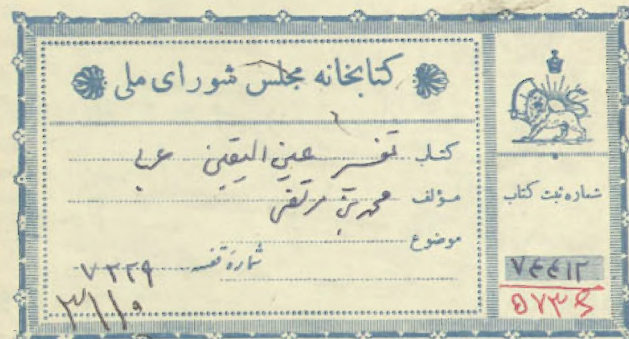 کتابخانه مجلس شورای ملی
کتاب تفسیر عین الیقین عربی
مؤلف محمد بن مرتضی
موضوع
شماره قفسه ۷۳۲۹
شماره ثبت کتاب
۷۴۴۱۲